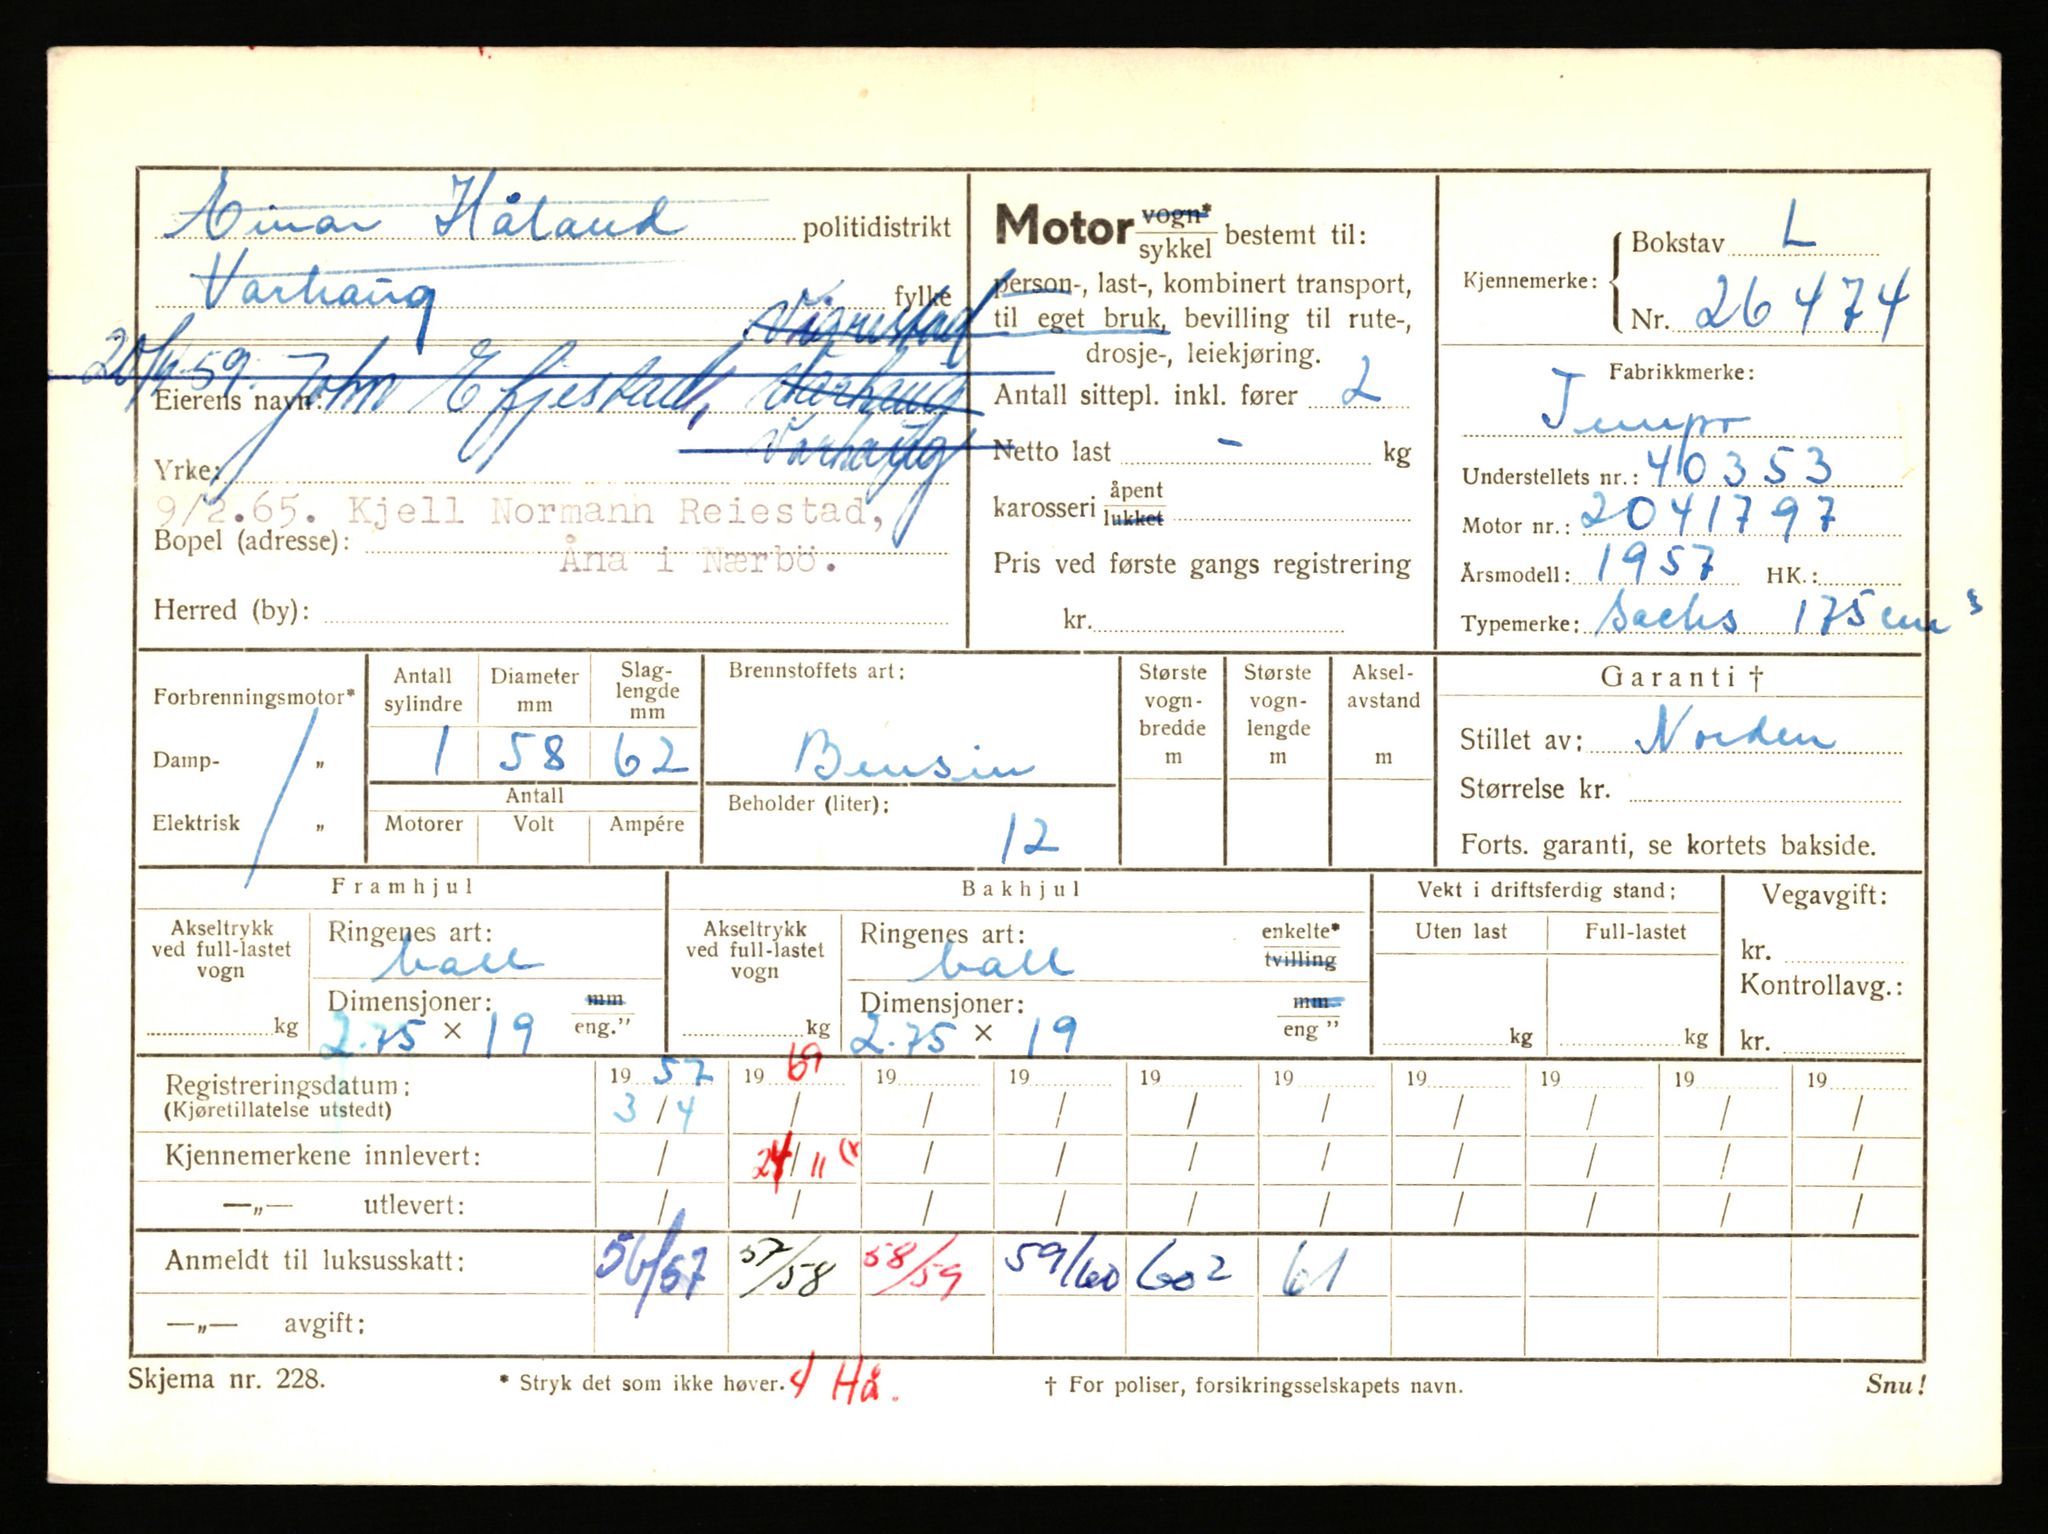 Einar Håland politidistrikt
Varhaug fylke
Vigrestad
John Efjestad, Varhaug
Eierens navn:
Varhaug
Yrke:
9/2.65. Kjell Normann Reiestad,
Bopel (adresse):
Åna i Nærbö.
Herred (by):
Motor vogn* / sykkel bestemt til:
person-, last-, kombinert transport,
til eget bruk, bevilling til rute-,
drosje-, leiekjøring.
Antall sittepl. inkl. fører 2
Netto last - kg
karosseri åpent / lukket
Pris ved første gangs registrering
kr.
Kjennemerke: Bokstav L
Nr. 26474
Fabrikkmerke:
Tempo
Understellets nr.: 40353
Motor nr.: 2041797
Årsmodell: 1957 HK.:
Typemerke: Sachs 175 cm³
Forbrenningsmotor*
Damp- „
Elektrisk „
Antall sylindre Diameter mm Slag-lengde mm
1 58 62
Antall
Motorer Volt Ampére
Brennstoffets art:
Bensin
Beholder (liter):
12
Største vogn-bredde m
Største vogn-lengde m
Aksel-avstand m
Garanti †
Stillet av: Norden
Størrelse kr.
Forts. garanti, se kortets bakside.
Framhjul
Akseltrykk ved full-lastet vogn
kg
Ringenes art:
ball
Dimensjoner: mm / eng.”
2.75 × 19
Bakhjul
Akseltrykk ved full-lastet vogn
kg
Ringenes art: enkelte* / tvilling
ball
Dimensjoner: mm / eng ”
2.75 × 19
Vekt i driftsferdig stand:
Uten last Full-lastet
kg kg
Vegavgift:
kr.
Kontrollavg.:
kr.
Registreringsdatum: 19 57 19 69 19 19 19 19 19 19 19 19
(Kjøretillatelse utstedt) 3/4 / / / / / / / / /
Kjennemerkene innlevert: / 24/11 / / / / / / / /
—„— utlevert: / / / / / / / / / /
Anmeldt til luksusskatt: 56/57 57/58 58/59 59/60 60² 61
—„— avgift:
Skjema nr. 228. * Stryk det som ikke høver. 4 Hå. † For poliser, forsikringsselskapets navn. Snu!